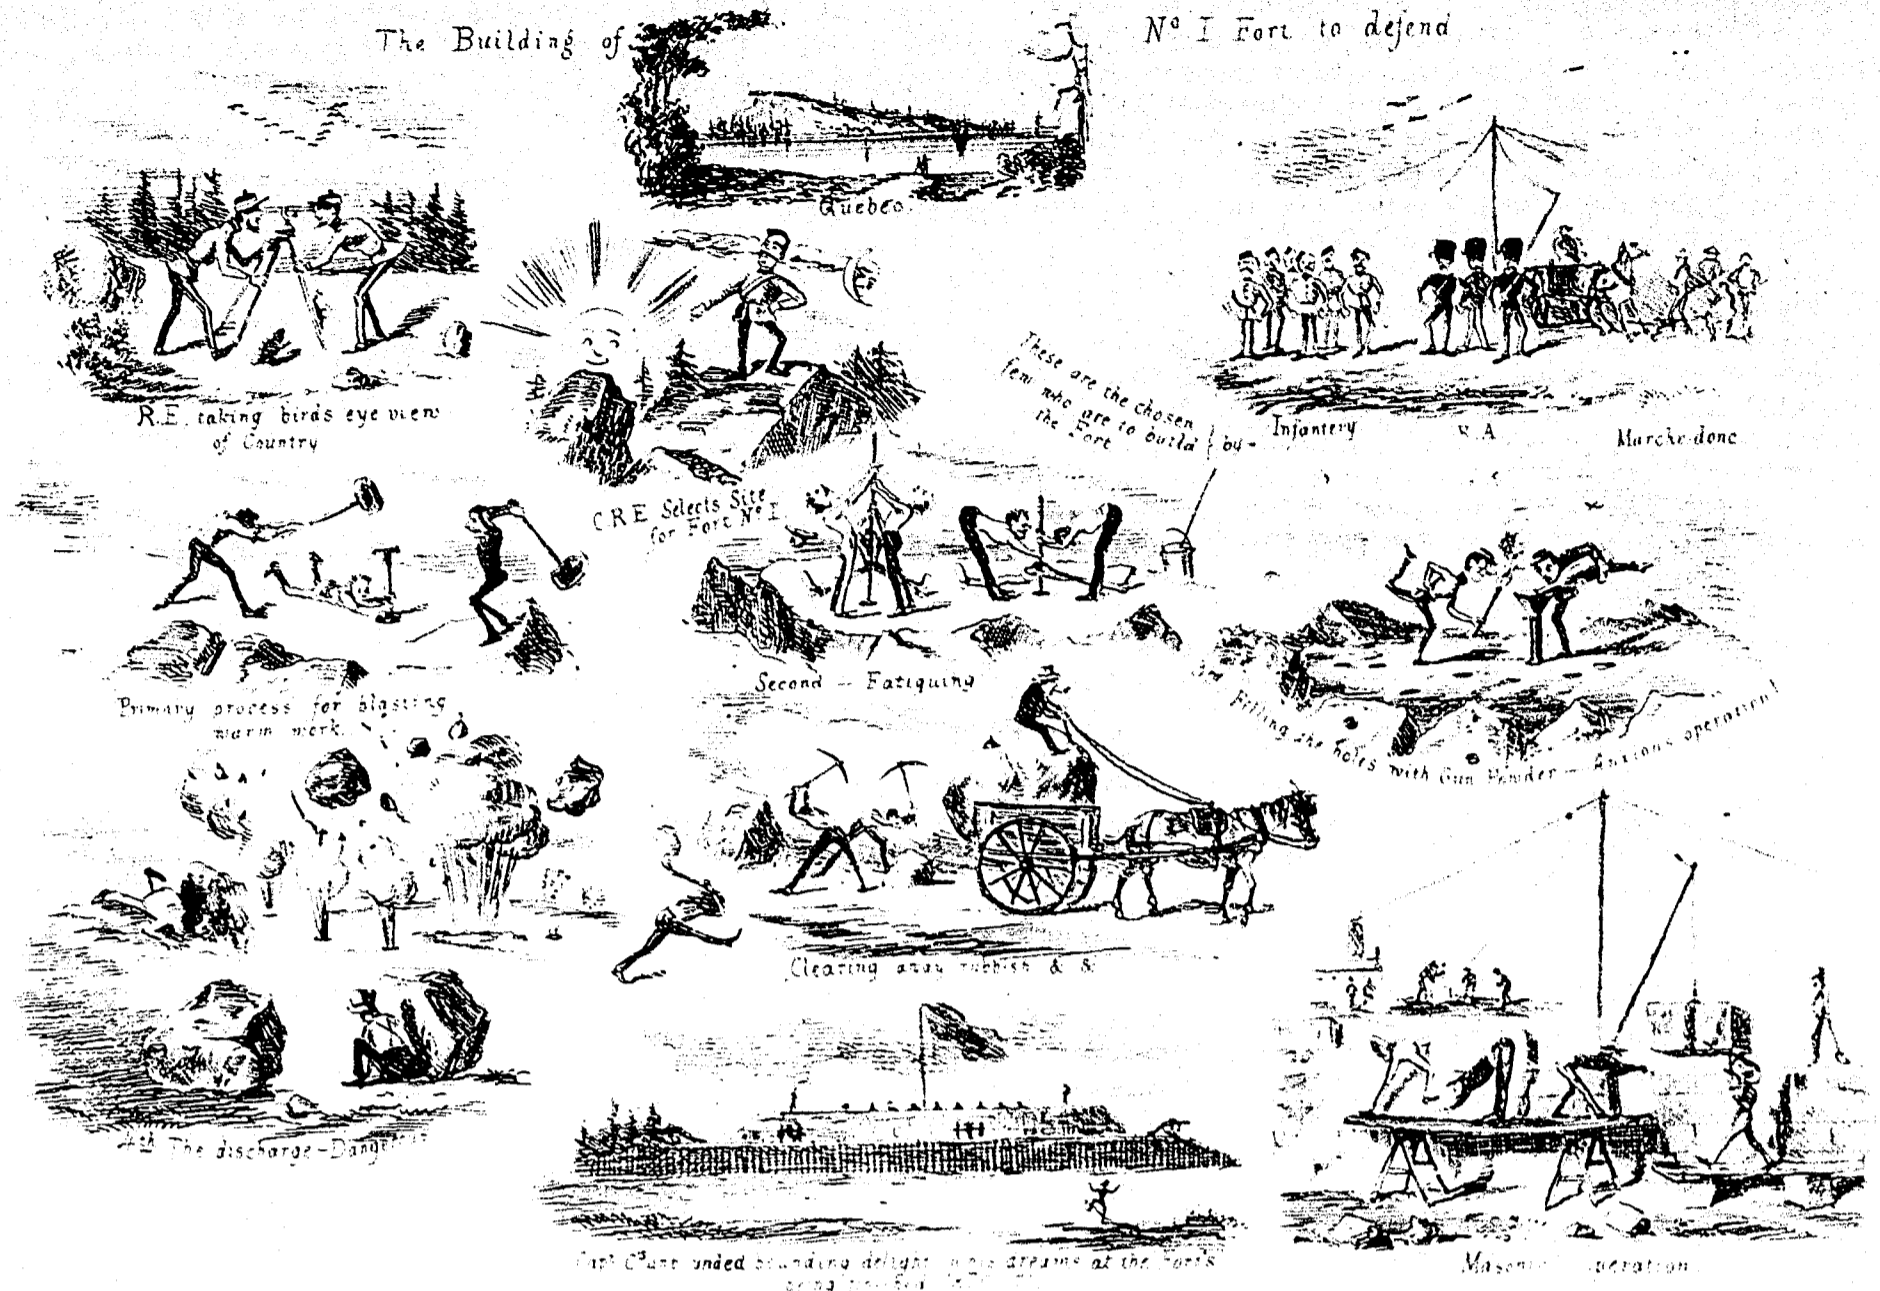 The Building of
Nº I Fort to defend
Quebec.
R.E. taking birds eye view
of Country
C.R.E Selects Site
for Fort Nº I
These are the chosen
few who are to build
the Fort
by-
Infantery
R.A
Marche-donc
Primary process for blasting
warm work.
Second — Fatiguing
3rd Filling the holes with Gun Powder — Anxious operation!
4th The discharge—
Clearing away rubbish & &
Masonic operation
bounding delight dreams at the Fort's
being